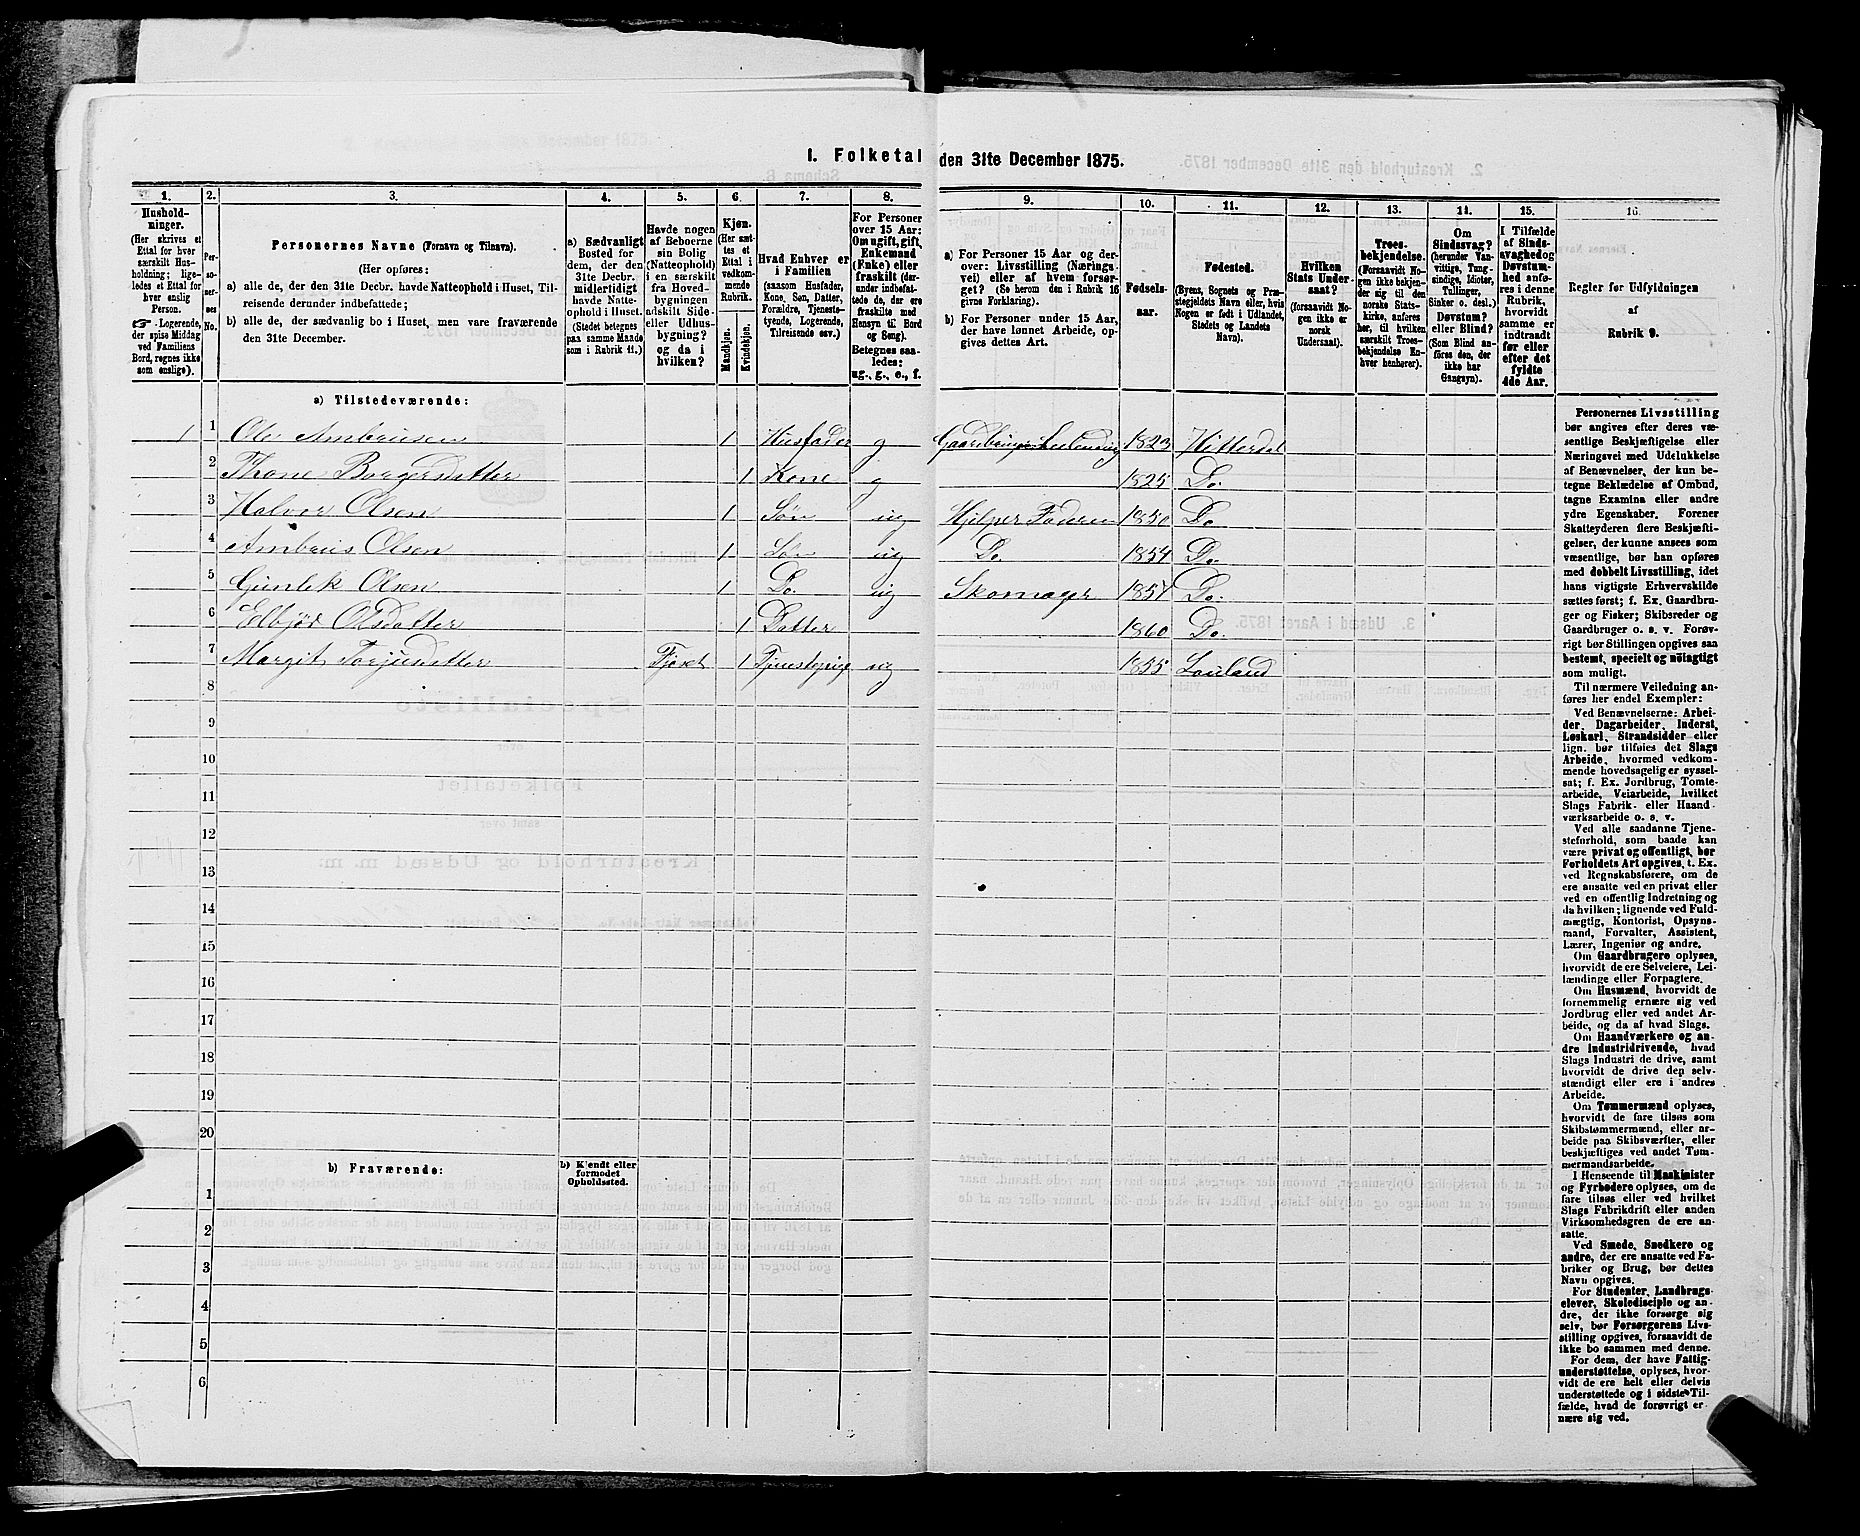 I. Folketal den 31te December 1875.
1. 2. 3. 4. 5. 6. 7. 8. 9. 10. 11. 12. 13. 14. 15. 16.
Hushold-
ninger.
(Her skrives et
Ettal for hver
særskilt Hus-
holdning; lige-
ledes et Ettal for
hver enslig
Person.
☞ Logerende,
der spise Middag
ved Familiens
Bord, regnes ikke
som enslige).
Per-
so-
ner-
nes
No.
Personernes Navne (Fornavn og Tilnavn).
(Her opføres:
a) alle de, der den 31te Decbr. havde Natteophold i Huset, Til-
reisende derunder indbefattede;
b) alle de, der sædvanlig bo i Huset, men vare fraværende
den 31te December.
a) Sædvanligt
Bosted for
dem, der den
31te Decbr.
midlertidigt
havde Natte-
ophold i Huset.
(Stedet betegnes
paa samme Maade
som i Rubrik 11.)
Havde nogen
af Beboerne
sin Bolig
(Natteophold)
i en særskilt
fra Hoved-
bygningen
adskilt Side-
eller Udhus-
bygning?
og da i
hvilken?
Kjøn.
(Her sæt-
tes et
Ettal i
vedkom-
mende
Rubrik.
Mandkjøn.
Kvindekjøn.
Hvad Enhver er
i Familien
(saasom Husfader,
Kone, Søn, Datter,
Forældre, Tjeneste-
tyende, Logerende,
Tilreisende osv.)
For Personer
over 15 Aar:
Om ugift, gift,
Enkemand
(Enke) eller
fraskilt (der-
under indbefat-
tede de, der ere
fraskilte med
Hensyn til Bord
og Seng).
Betegnes saa-
ledes:
ug., g., e., f.
a) For Personer 15 Aar og der-
over: Livsstilling (Nærings-
vei) eller af hvem forsør-
get? (Se herom den i Rubrik 16
givne Forklaring).
b) For Personer under 15 Aar,
der have lønnet Arbeide, op-
gives dettes Art.
Fødsels-
aar.
Fødested.
(Byens, Sognets og Præ-
stegjeldets Navn eller, hvis
Nogen er født i Udlandet,
Stedets og Landets
Navn).
Hvilken
Stats Under-
saat?
(forsaavidt No-
gen ikke er
norsk
Undersaat).
Troes-
bekjendelse.
(Forsaavidt No-
gen ikke bekjen-
der sig til den
norske Stats-
kirke, anføres
her, til hvilken
særskilt Troes-
bekjendelse En-
hver henhører).
Om
Sindssvag?
(herunder Van-
vittige, Tung-
sindige, Idioter,
Tullinger,
Sinker o. desl.)
Døvstum?
eller Blind?
(Som Blind an-
føres den, der
ikke har
Gangsyn).
I Tilfælde
af Sinds-
svaghed og
Døvstum-
hed anfø-
res i denne
Rubrik,
hvorvidt
samme er
indtraadt
før eller
efter det
fyldte
4de Aar.
Regler for Udfyldningen
af
Rubrik 9.
a) Tilstedeværende:
1 1 Ole Ambrusen 1 Husfader g Gaardbruger 1823 Hitterdal
2 Thone Borgersdatter 1 Kone g 1825 Do.
3 Halvor Olsen 1 Søn ug Hjelper Faderen 1850 Do
4 Ambrus Olsen 1 Søn ug Do 1854 Do
5 Gunlek Olsen 1 Do. ug Skomager 1857 Do.
6 Elbjør Olsdatter 1 Datter 1860 Do.
7 Margit Torjusdatter Fjøset 1 Tjenestepige ug 1855 Louland
8
9
10
11
12
13
14
15
16
17
18
19
20
b) Fraværende:
b) Kjendt eller
formodet
Opholdssted.
1
2
3
4
5
6
Personernes Livsstilling
bør angives efter deres væ-
sentlige Beskjæftigelse eller
Næringsvei med Udelukkelse
af Benævnelser, der kun be-
tegne Beklædelse af Ombud,
tagne Examina eller andre
ydre Egenskaber. Forener
Skatteyderen flere Beskjæfti-
gelser, der kunne ansees som
væsentlige, bør han opføres
med dobbelt Livsstilling, idet
hans vigtigste Erhvervskilde
sættes først; f. Ex. Gaardbru-
ger og Fisker; Skibsreder og
Gaardbruger o. s. v. Forøv-
rigt bør Stillingen opgives saa
bestemt, specielt og nøiagtigt
som muligt.
Til nærmere Veiledning an-
føres her endel Exempler:
Ved Benævnelserne: Arbei-
der, Dagarbeider, Inderst,
Løskarl, Strandsidder eller
lign. bør tilføies det Slags
Arbeide, hvormed vedkom-
mende hovedsagelig er syssel-
sat; f. Ex. Jordbrug, Tomte-
arbeide, Veiarbeide, hvilket
Slags Fabrik- eller Haand-
værksarbeide o. s. v.
Ved alle saadanne Tjene-
steforhold, som baade kan
være privat og offentligt, bør
Forholdets Art opgives, t. Ex.
ved Regnskabsførere, om de
ere ansatte ved en privat eller
ved en offentlig Indretning og
da hvilken; lignende ved Fuld-
mægtig, Kontorist, Opsyns-
mand, Forvalter, Assistent,
Lærer, Ingeniør og andre.
Om Gaardbrugere oplyses,
hvorvidt de ere Selveiere, Lei-
lændinge eller Forpagtere.
Om Husmænd, hvorvidt de
fornemmelig ernære sig ved
Jordbrug eller ved andet Ar-
beide, og da af hvad Slags.
Om Haandværkere og an-
dre Industridrivende, hvad
Slags Industri de drive, samt
hvorvidt de drive den selv-
stændigt eller ere i andres
Arbeide.
Om Tømmermænd oplyses,
hvorvidt de fare tilsøs som
Skibstømmermænd, eller ar-
beide paa Skibsværfter, eller
beskjæftiges ved andet Tøm-
mermandsarbeide.
I Henseende til Maskinister
og Fyrbødere oplyses, om de
fare tilsøs eller ved hvilket
Slags Fabrikdrift eller anden
Virksomhedsgren de ere an-
satte.
Ved Smede, Snedkere og
andre, der ere ansatte ved Fa-
briker og Brug, bør dettes
Navn opgives.
For Studenter, Landbrugs-
elever, Skoledisciple og an-
dre, der ikke forsørge sig
selv, bør Forsørgerens Livs-
stilling opgives, forsaavidt de
ikke bo sammen med denne.
For dem, der have Fattig-
understøttelse, oplyses, hvor-
vidt de ere helt eller delvis
understøttede og i sidste Til-
fælde, hvad de forøvrigt er-
nære sig ved.